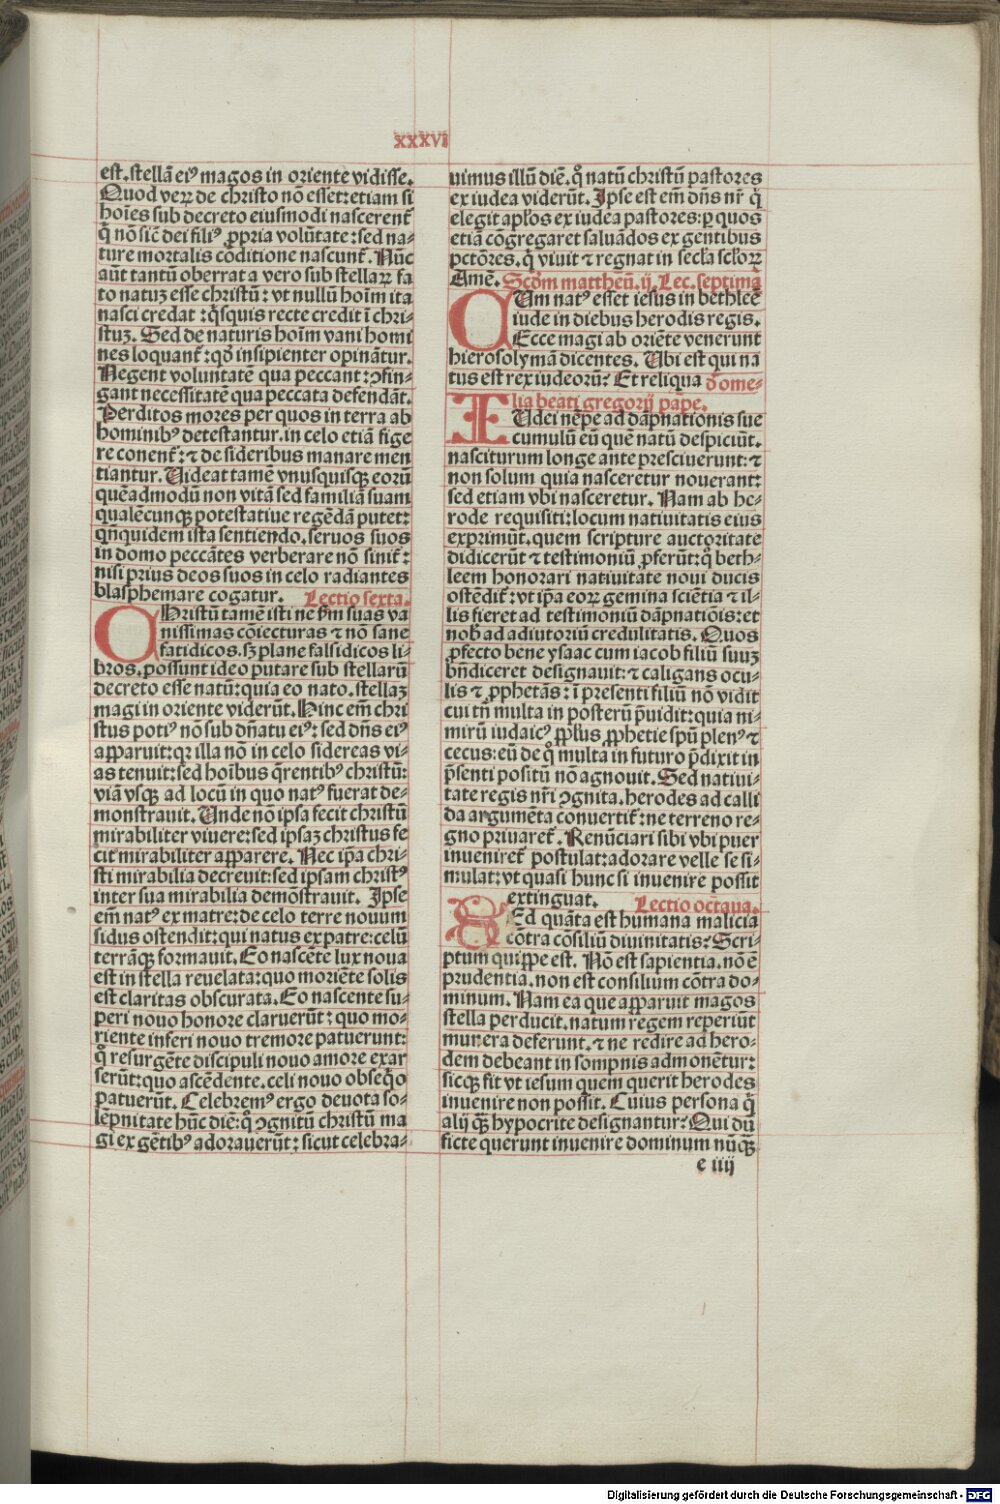 XXXVI
est. stellā eiꝰ magos in oriente vidisse.
Quod veꝝ de christo nō esset: etiam si
hoīes sub decreto eiusmodi nascerent᷑
q̄ nō sic̄ dei filiꝰ ꝓpria volūtate: sed na-
ture mortalis cōditione nascunt᷑. Nūc
aūt tantū oberrat a vero sub stellaꝝ fa
to natuꝫ esse christū: vt nullū hoīm ita
nasci credat: q̇squis recte credit ī chri-
stuꝫ. Sed de naturis hoīm vani homi
nes loquant᷑: qđ insipienter opinātur.
Negent voluntatē qua peccant: ꝯfin-
gant necessitatē qua peccata defendāt.
Perditos mores per quos in terra ab
hominibꝰ detestantur. in celo etiā fige
re conent᷑: ⁊ de sideribus manare men
tiantur. Videat tamē vnusquisqꝫ eorū
quēadmodū non vitā sed familiā suam
qualēcunqꝫ potestatiue regēdā putet:
qn̄quidem ista sentiendo. seruos suos
in domo peccātes verberare nō sinit᷑:
nisi prius deos suos in celo radiantes
blasphemare cogatur. Lectio sexta.
CHristū tamē isti ne ẜm suas va
nissimas cōiecturas ⁊ nō sane
fatidicos. sꝫ plane falsidicos li-
bros. possunt ideo putare sub stellarū
decreto esse natū: quia eo nato. stellaꝫ
magi in oriente viderūt. Hinc em̄ chri
stus potiꝰ nō sub dn̄atu eiꝰ: sed dn̄s eiꝰ
apparuit: qꝛ illa nō in celo sidereas vi-
as tenuit: sed hoībus q̄rentibꝰ christū:
viā vsqꝫ ad locū in quo natꝰ fuerat de-
monstrauit. Unde nō ipsa fecit christū
mirabiliter viuere: sed ipsaꝫ christus fe
cit mirabiliter apparere. Nec ip̄a chri-
sti mirabilia decreuit: sed ipsam christꝰ
inter sua mirabilia demōstrauit. Ipse
em̄ natꝰ ex matre: de celo terre nouum
sidus ostendit: qui natus ex patre: celū
terrāqꝫ formauit. Eo nascēte lux noua
est in stella reuelata: quo moriēte solis
est claritas obscurata. Eo nascente su-
peri nouo honore claruerūt: quo mo-
riente inferi nouo tremore patuerunt:
q̊ resurgēte discipuli nouo amore exar
serūt: quo ascēdente. celi nouo obseq̇o
patuerūt. Celebremꝰ ergo deuota so-
lēpnitate hūc diē: q̊ ꝯgnitū christū ma
gi ex gētibꝰ adorauerūt: sicut celebra-
uimus illū diē. q̊ natū christū pastores
ex iudea viderūt. Ipse est em̄ dn̄s nr̄ q̇
elegit apl̄os ex iudea pastores: ꝑ quos
etiā cōgregaret saluādos ex gentibus
pctōres. q̇ viuit ⁊ regnat in secl̄a scl̄oꝝ
Amē. Scd̄m mattheū. ij. Lec. septimā
CUm natꝰ esset iesus in bethleē
iude in diebus herodis regis.
Ecce magi ab oriēte venerunt
hierosolymā dicentes. Ubi est qui na
tus est rex iudeorū? Et reliqua d̄ ome-
lia beati gregorij pap̄e.
IUdei nēpe ad dāpnationis sue
cumulū eū quē natū despiciūt.
nasciturum longe ante presciuerunt: ⁊
non solum quia nasceretur nouerant:
sed etiam vbi nasceretur. Nam ab he-
rode requisiti: locum natiuitatis eius
exprimūt. quem scripture auctoritate
didicerūt ⁊ testimoniū ꝓferūt: q̇ beth-
leem honorari natiuitate noui ducis
ostēdit᷑: vt ip̄a eoꝝ gemina sciētia ⁊ il-
lis fieret ad testimoniū dāpnatiōis: et
nob̄ ad adiutoriū credulitatis. Quos
ꝓfecto bene ysaac cum iacob filiū suuꝫ
bn̄diceret designauit: ⁊ caligans ocu-
lis ⁊ ꝓphetās: ī presenti filiū nō vidit
cui tn̄ multa in posterū p̄uidit: quia ni-
mirū iudaicꝰ ppl̄us ꝓphetie spū plenꝰ ⁊
cecus: eū de q̊ multa in futuro p̄dixit in
p̄senti positū nō agnouit. Sed natiui-
tate regis nr̄i ꝯgnita. herodes ad calli
da argumēta conuertit᷑: ne terreno re-
gno priuaret᷑. Renūciari sibi vbi puer
inueniret᷑ postulat: adorare velle se si-
mulat: vt quasi hunc si inuenire possit
extinguat. Lectio octaua.
SEd quāta est humana malicia
cōtra cōsiliū diuinitatis? Scri-
ptum quippe est. Nō est sapientia. nō ē
prudentia. non est consilium cōtra do-
minum. Nam ea que apparuit magos
stella perducit. natum regem reperiūt
munera deferunt. ⁊ ne redire ad hero-
dem debeant in sompnis admonētur:
sicqꝫ fit vt iesum quem querit herodes
inuenire non possit. Cuius persona q̇
alij qꝫ̄ hypocrite designantur? Qui dū
ficte querunt inuenire dominum nūqꝫ̄
e iiij
Digitalisierung gefördert durch die Deutsche Forschungsgemeinschaft - DFG